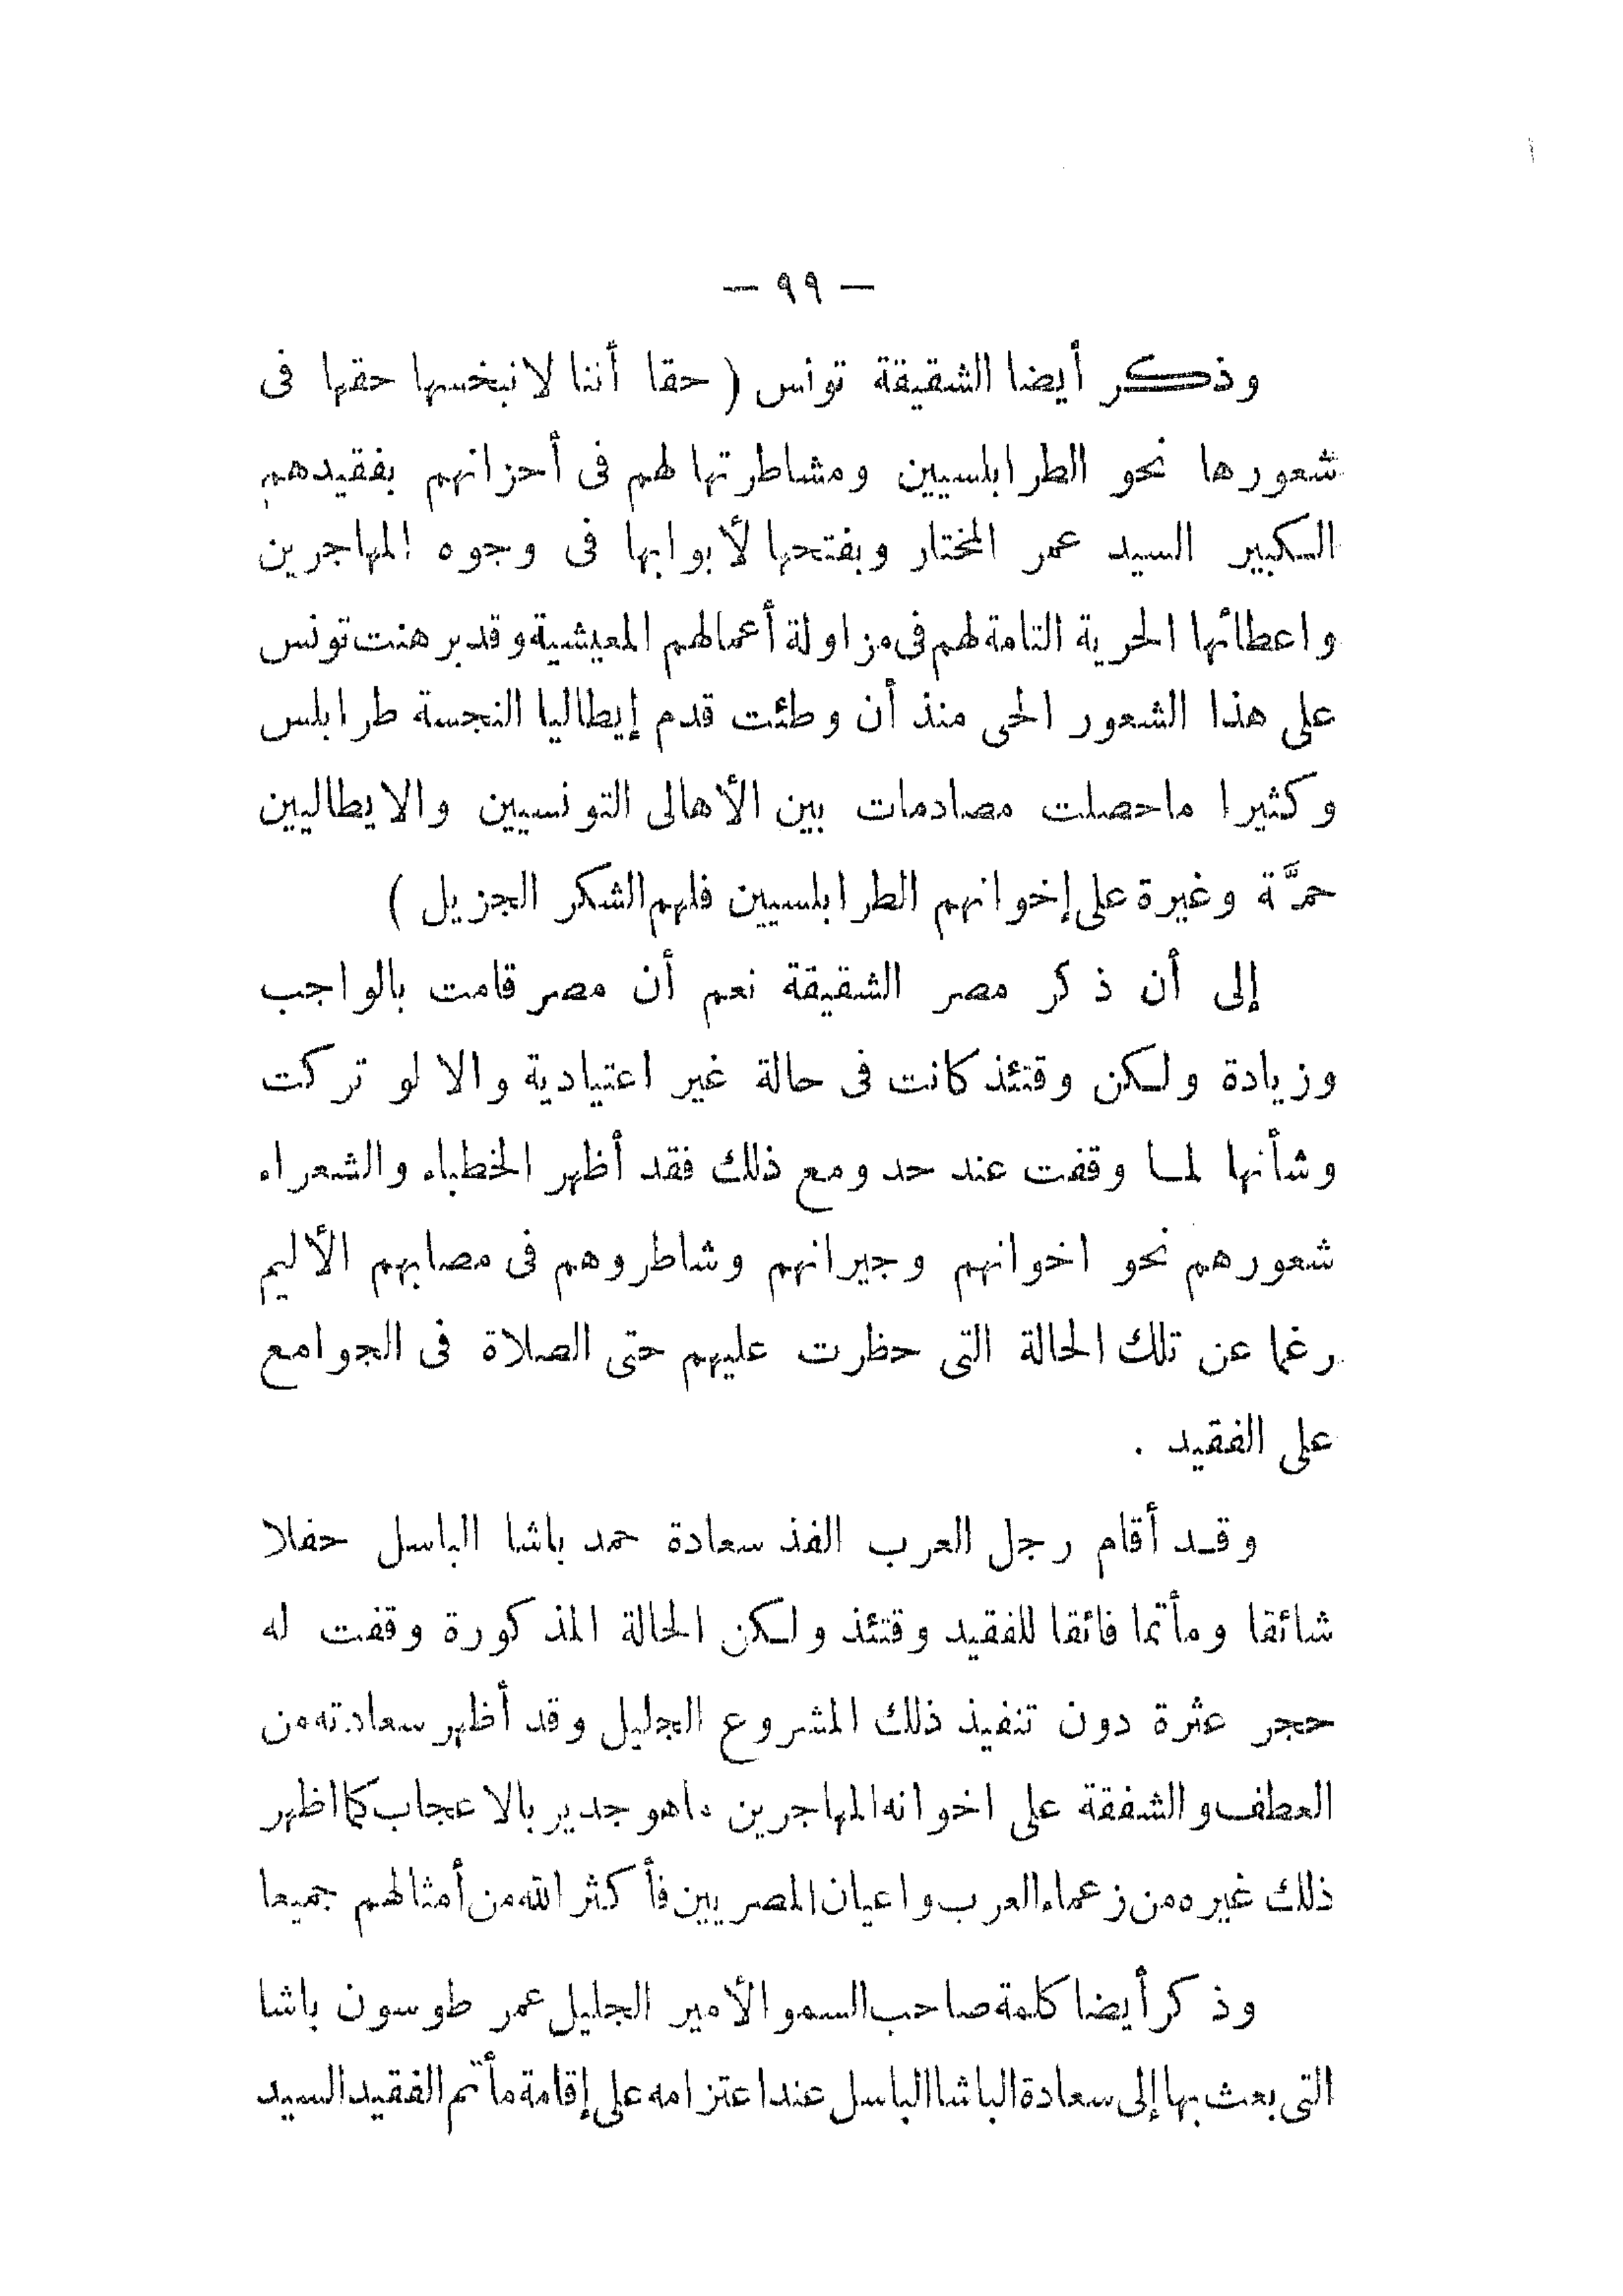 — ٩٩ —
وذكر أيضا الشقيقة تونس ( حقا أننا لانبخسها حقها فى
شعورها نحو الطرابلسيين ومشاطرتها لهم فى أحزانهم بفقيدهم
الكبير السيد عمر المختار وبفتحها لأبوابها فى وجوه المهاجرين
واعطائها الحرية التامة لهم فى مزاولة أعمالهم المعيشية وقد برهنت تونس
على هذا الشعور الحى منذ أن وطئت قدم إيطاليا النجسة طرابلس
وكثيرا ماحصلت مصادمات بين الأهالى التونسيين والايطاليين
حمَّة وغيرة على إخوانهم الطرابلسيين فلهم الشكر الجزيل )
إلى أن ذكر مصر الشقيقة نعم أن مصر قامت بالواجب
وزيادة ولكن وقتئذ كانت فى حالة غير اعتيادية والا لو تركت
وشأنها لما وقفت عند حد ومع ذلك فقد أظهر الخطباء والشعراء
شعورهم نحو اخوانهم وجيرانهم وشاطروهم فى مصابهم الأليم
رغما عن تلك الحالة التى حظرت عليهم حتى الصلاة فى الجوامع
على الفقيد .
وقد أقام رجل العرب الفذ سعادة حمد باشا الباسل حفلا
شائقا ومأتما فائقا للفقيد وقتئذ ولكن الحالة المذكورة وقفت له
حجر عثرة دون تنفيذ ذلك المشروع الجليل وقد أظهر سعادته من
العطف والشفقة على اخوانه المهاجرين ماهو جدير بالاعجاب كما اظهر
ذلك غيره من زعماء العرب واعيان المصريين فأكثر الله من أمثالهم جميعا
وذكر أيضا كلمة صاحب السمو الأمير الجليل عمر طوسون باشا
التى بعث بها إلى سعادة الباشا الباسل عند اعتزامه على إقامة مأتم الفقيد السيد